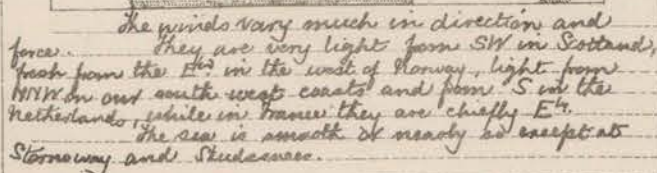 The winds vary much in direction and
force. They are very light from SW in Scotland,
fresh from the Ewd. in the west of Norway, light from
NNW on our south west coasts and from S in the
Netherlands, while in France they are chiefly Ely.
The sea is smooth or nearly so except at
Stornoway and Studesnaes.